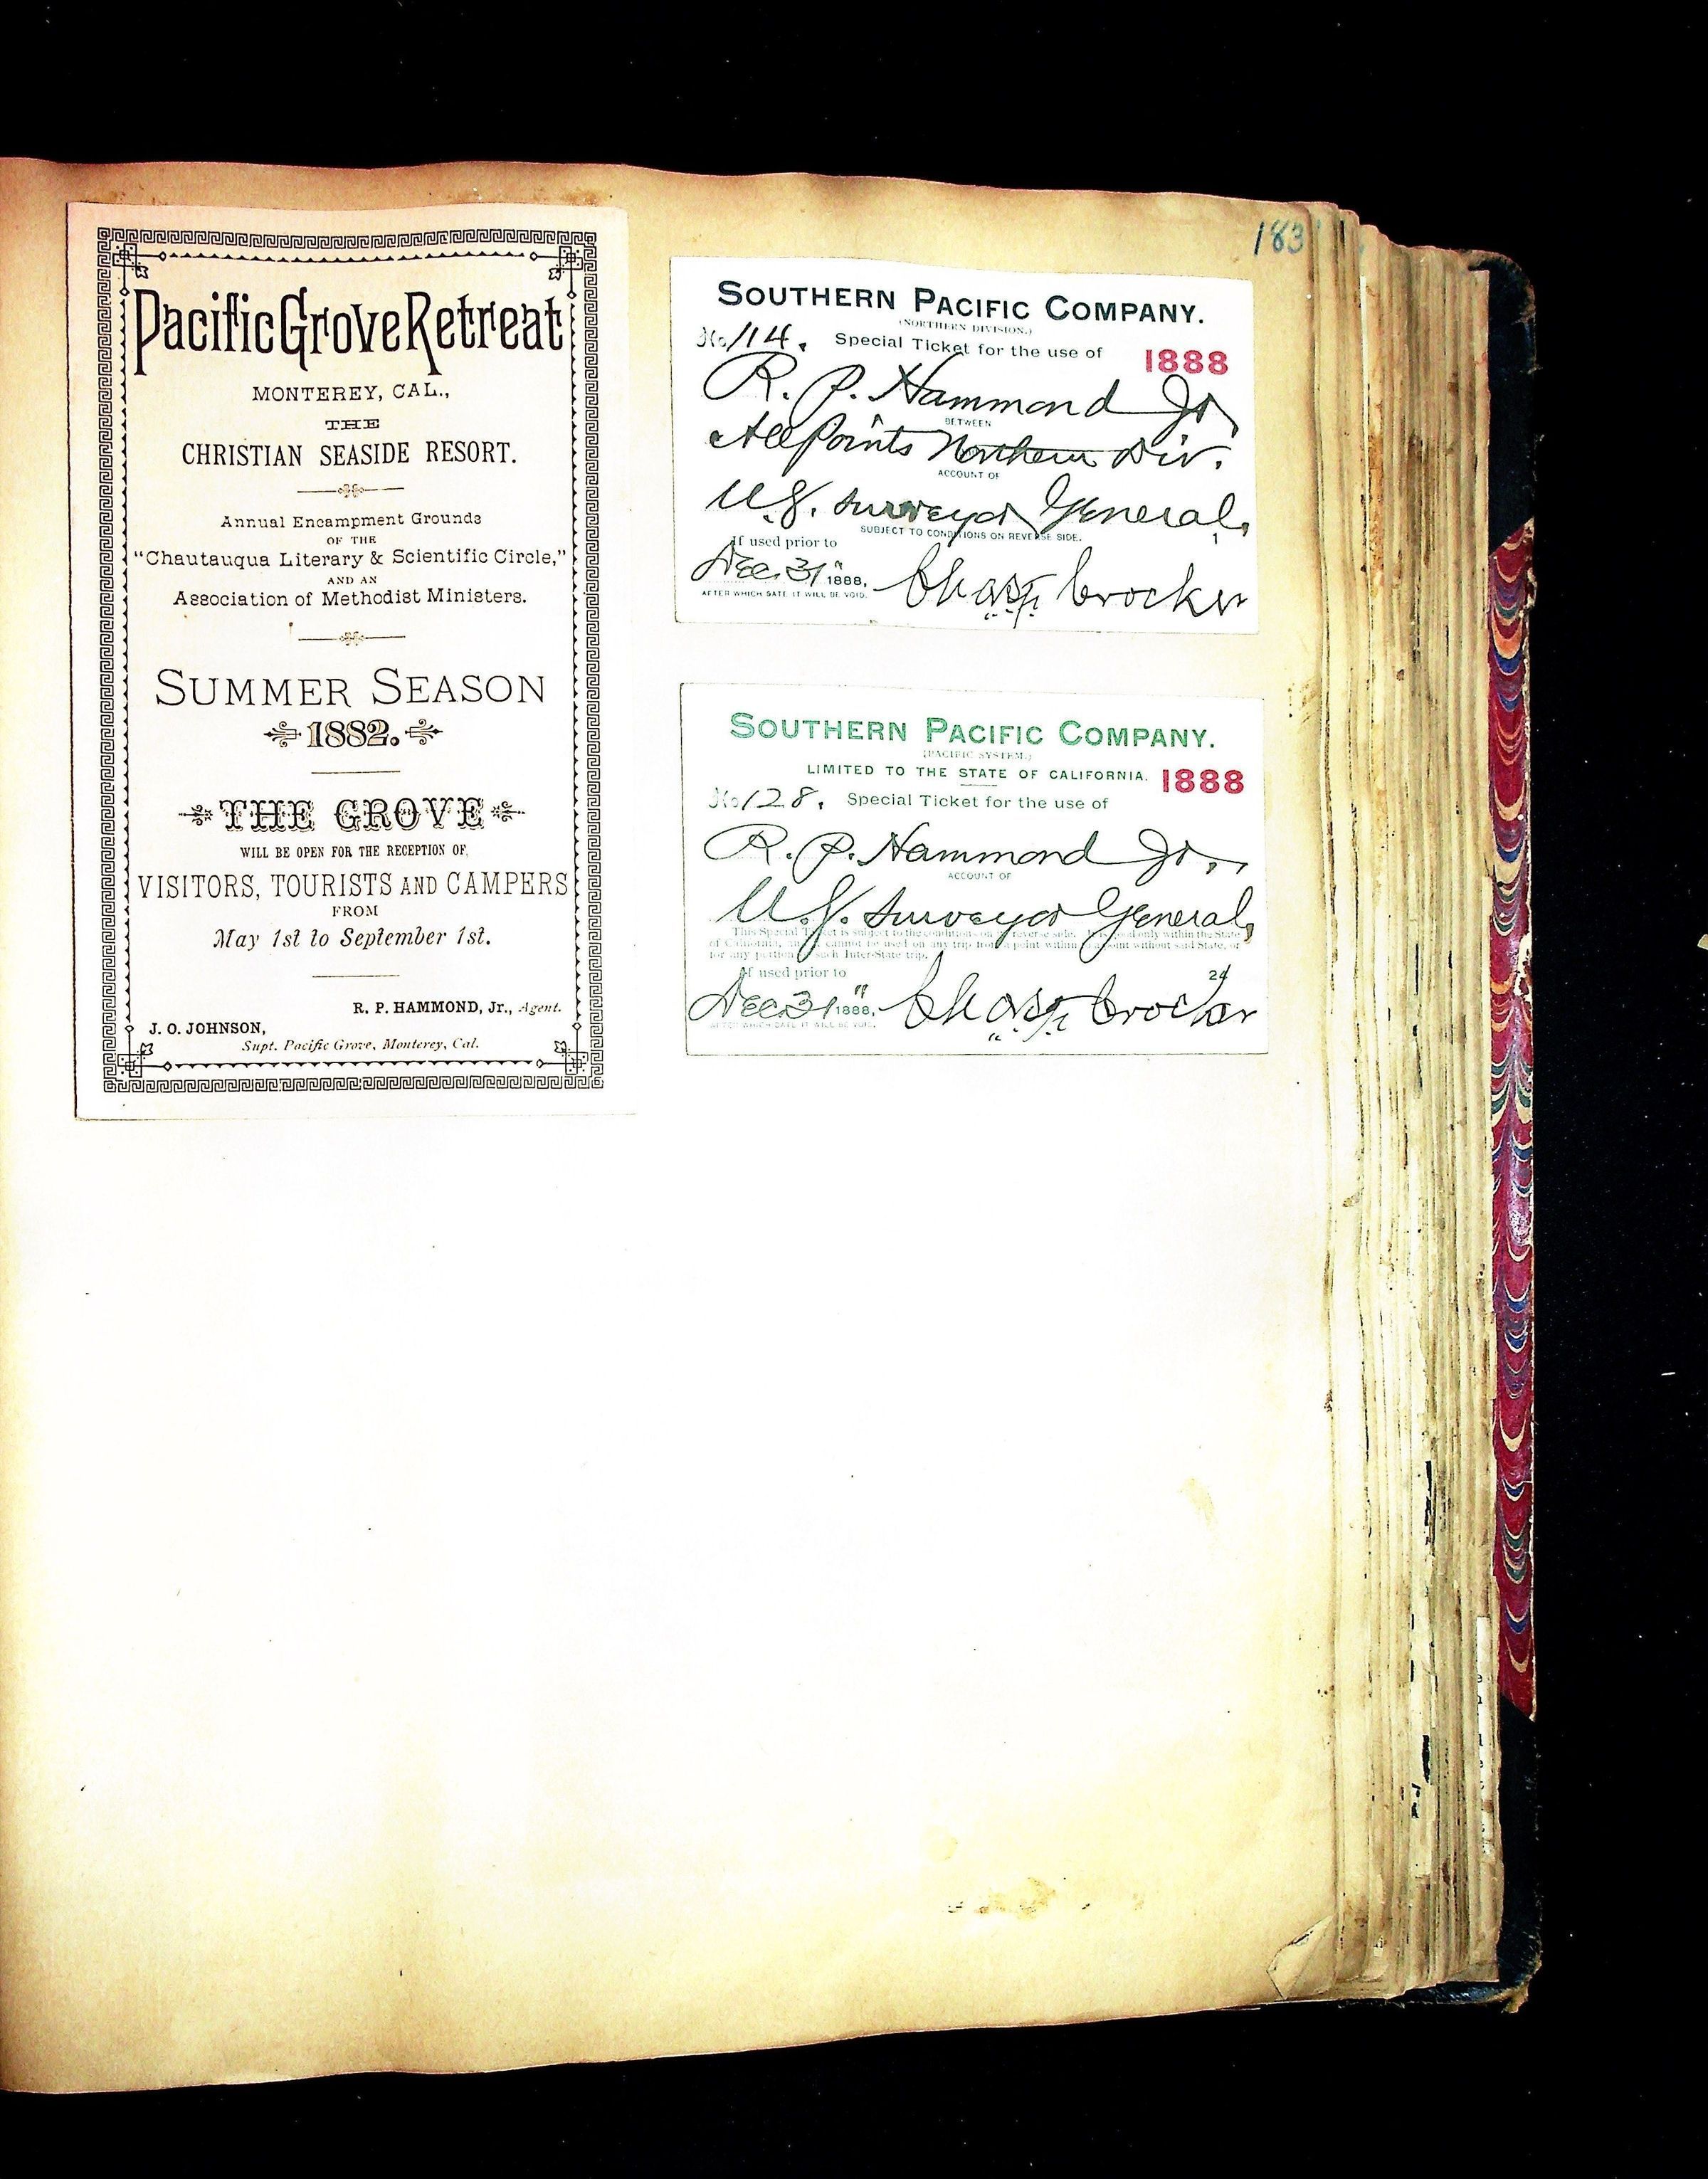 183
Pacific Grove Retreat
MONTEREY, CAL.,
THE
CHRISTIAN SEASIDE RESORT.
Annual Encampment Grounds
OF THE
"Chautauqua Literary & Scientific Circle,"
AND AN
Association of Methodist Ministers.
SUMMER SEASON
1882.
THE GROVE
WILL BE OPEN FOR THE RECEPTION OF
VISITORS, TOURISTS AND CAMPERS
FROM
May 1st to September 1st.
R. P. HAMMOND, Jr., Agent.
J. O. JOHNSON,
Supt. Pacific Grove, Monterey, Cal.
SOUTHERN PACIFIC COMPANY.
(NORTHERN DIVISION.)
No 114. Special Ticket for the use of 1888
R. P. Hammond Jr
BETWEEN
All Points Northern Div.
ACCOUNT OF
U.S. Surveyor General,
SUBJECT TO CONDITIONS ON REVERSE SIDE.
1
If used prior to
Dec. 31" 1888, Chas F Crocker
AFTER WHICH DATE IT WILL BE VOID.
SOUTHERN PACIFIC COMPANY.
(PACIFIC SYSTEM.)
LIMITED TO THE STATE OF CALIFORNIA. 1888
No 128. Special Ticket for the use of
R. P. Hammond Jr.,
ACCOUNT OF
U.S. Surveyor General,
This Special Ticket is subject to the conditions on reverse side. It is good only within the State
of California, and cannot be used on any trip from a point within to a point without said State, or
for any portion of such Inter-State trip.
If used prior to 24
Dec. 31" 1888, Chas F Crocker
AFTER WHICH DATE IT WILL BE VOID.